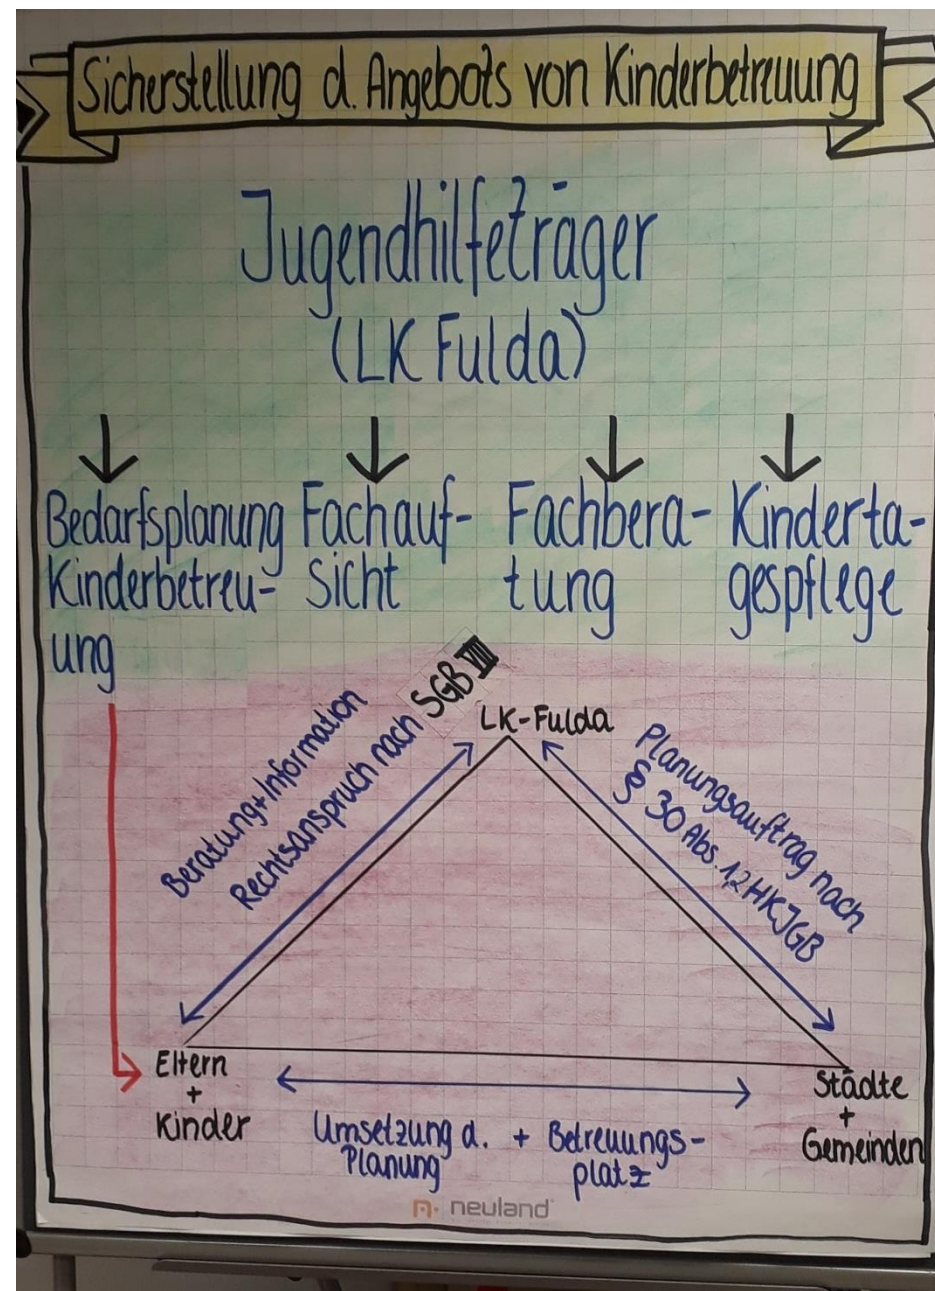 Sicherstellung d. Angebots von Kinderbetreuung
Jugendhilfeträger
(LK Fulda)
Bedarfsplanung
Kinderbetreu-
ung
Fachauf-
sicht
Fachbera-
tung
Kinderta-
gespflege
Beratung+Information
Rechtsanspruch nach SGB VIII
LK-Fulda
Planungsauftrag nach
§ 30 Abs. 1,2 HKJGB
Eltern
+
Kinder
Umsetzung d. + Betreuungs-
Planung platz
Städte
+
Gemeinden
neuland